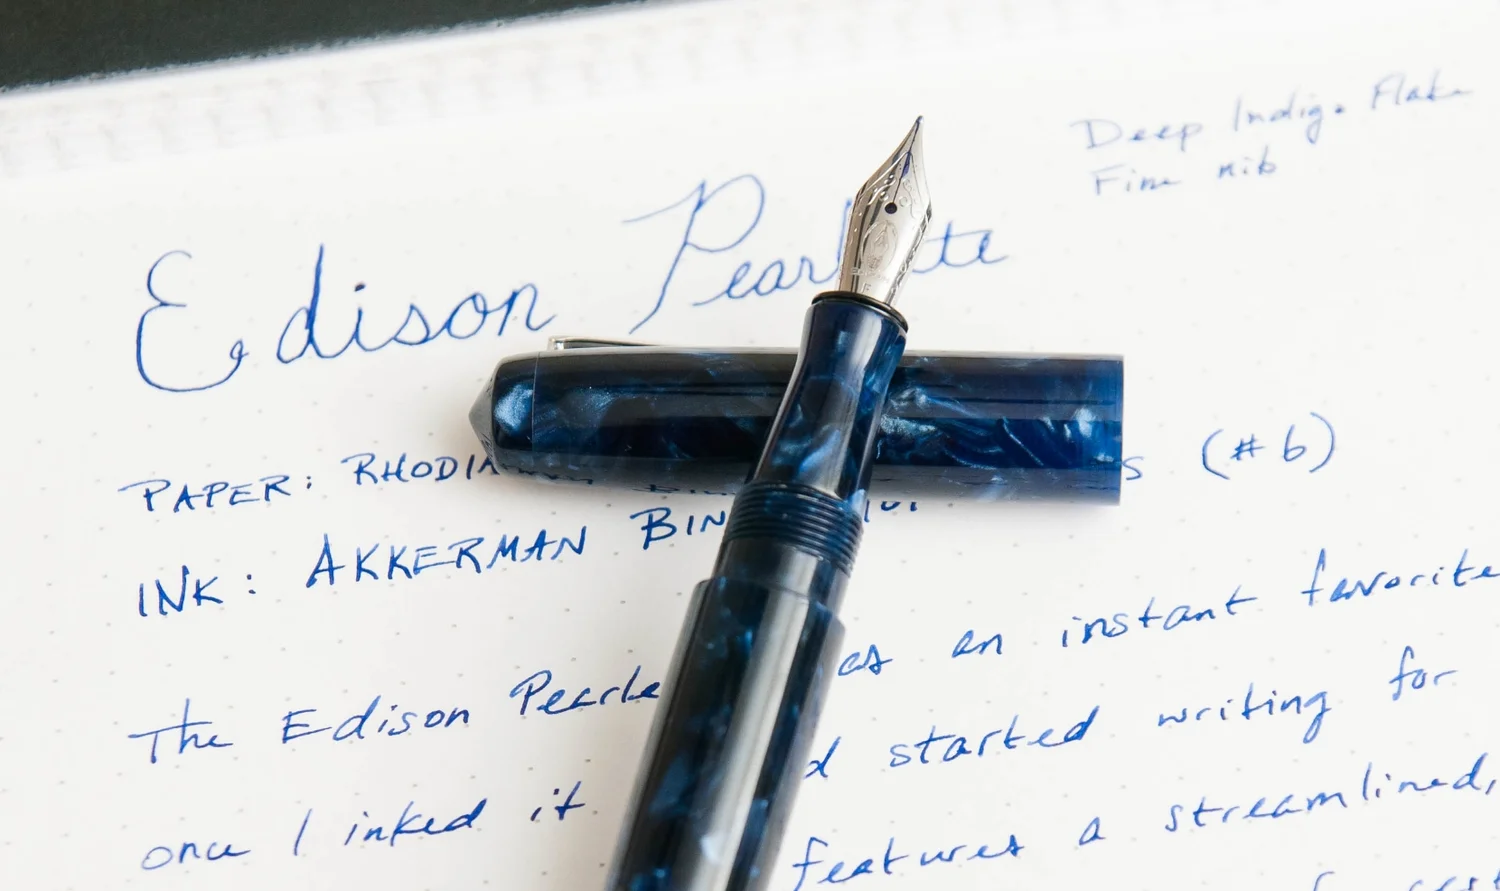 Deep Indigo Flake
Fine nib
Edison Pearlette
PAPER: RHODIA (#6)
INK: AKKERMAN BIN
The Edison Pearle as an instant favorite
once I inked it d started writing for
features a streamlined,